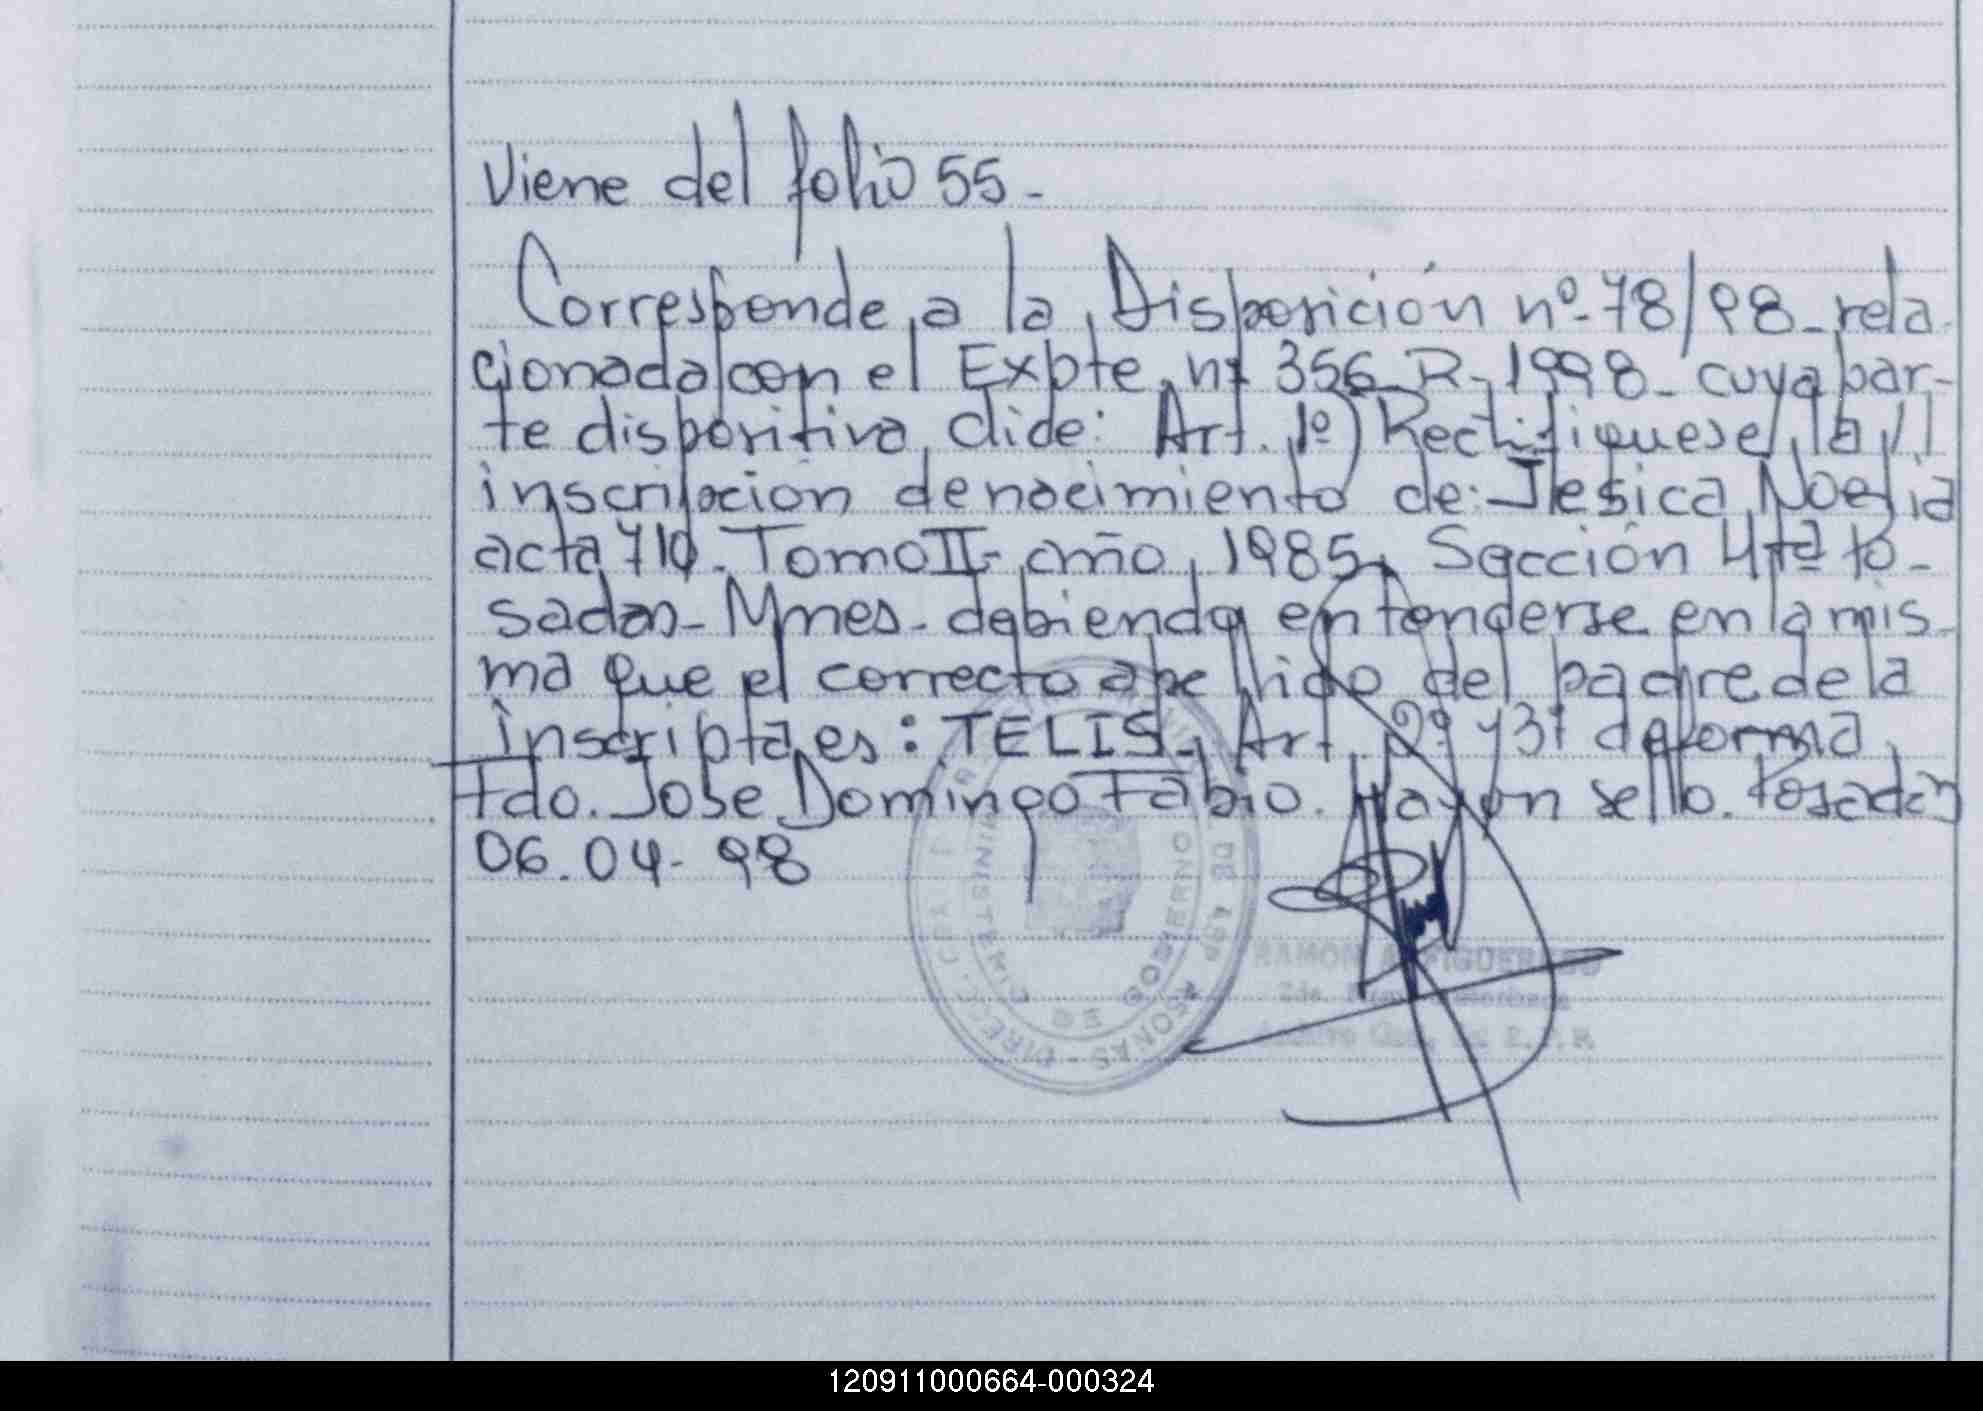 Viene del folio 55-
Corresponde a la Disposición nº-78/98-rela-
cionada con el Expte nº 356-R-1998- cuya par-
te dispositiva dide: Art. 1º) Rectifiquese la //
inscripción de nacimiento de: Jesica Noelia
acta 710. Tomo II- año 1985, Sección 4ta Po-
sadas- Mnes- debiendo entenderse en la mis-
ma que el correcto apellido del padre de la
inscripta es: TELIS-, Art. 2º y 3º de forma
Fdo. Jose Domingo Fabio. Hay un sello. Posadas
06.04-98
MINISTERIO DE GOBIERNO
RAMON A. FIGUEREDO
120911000664-000324